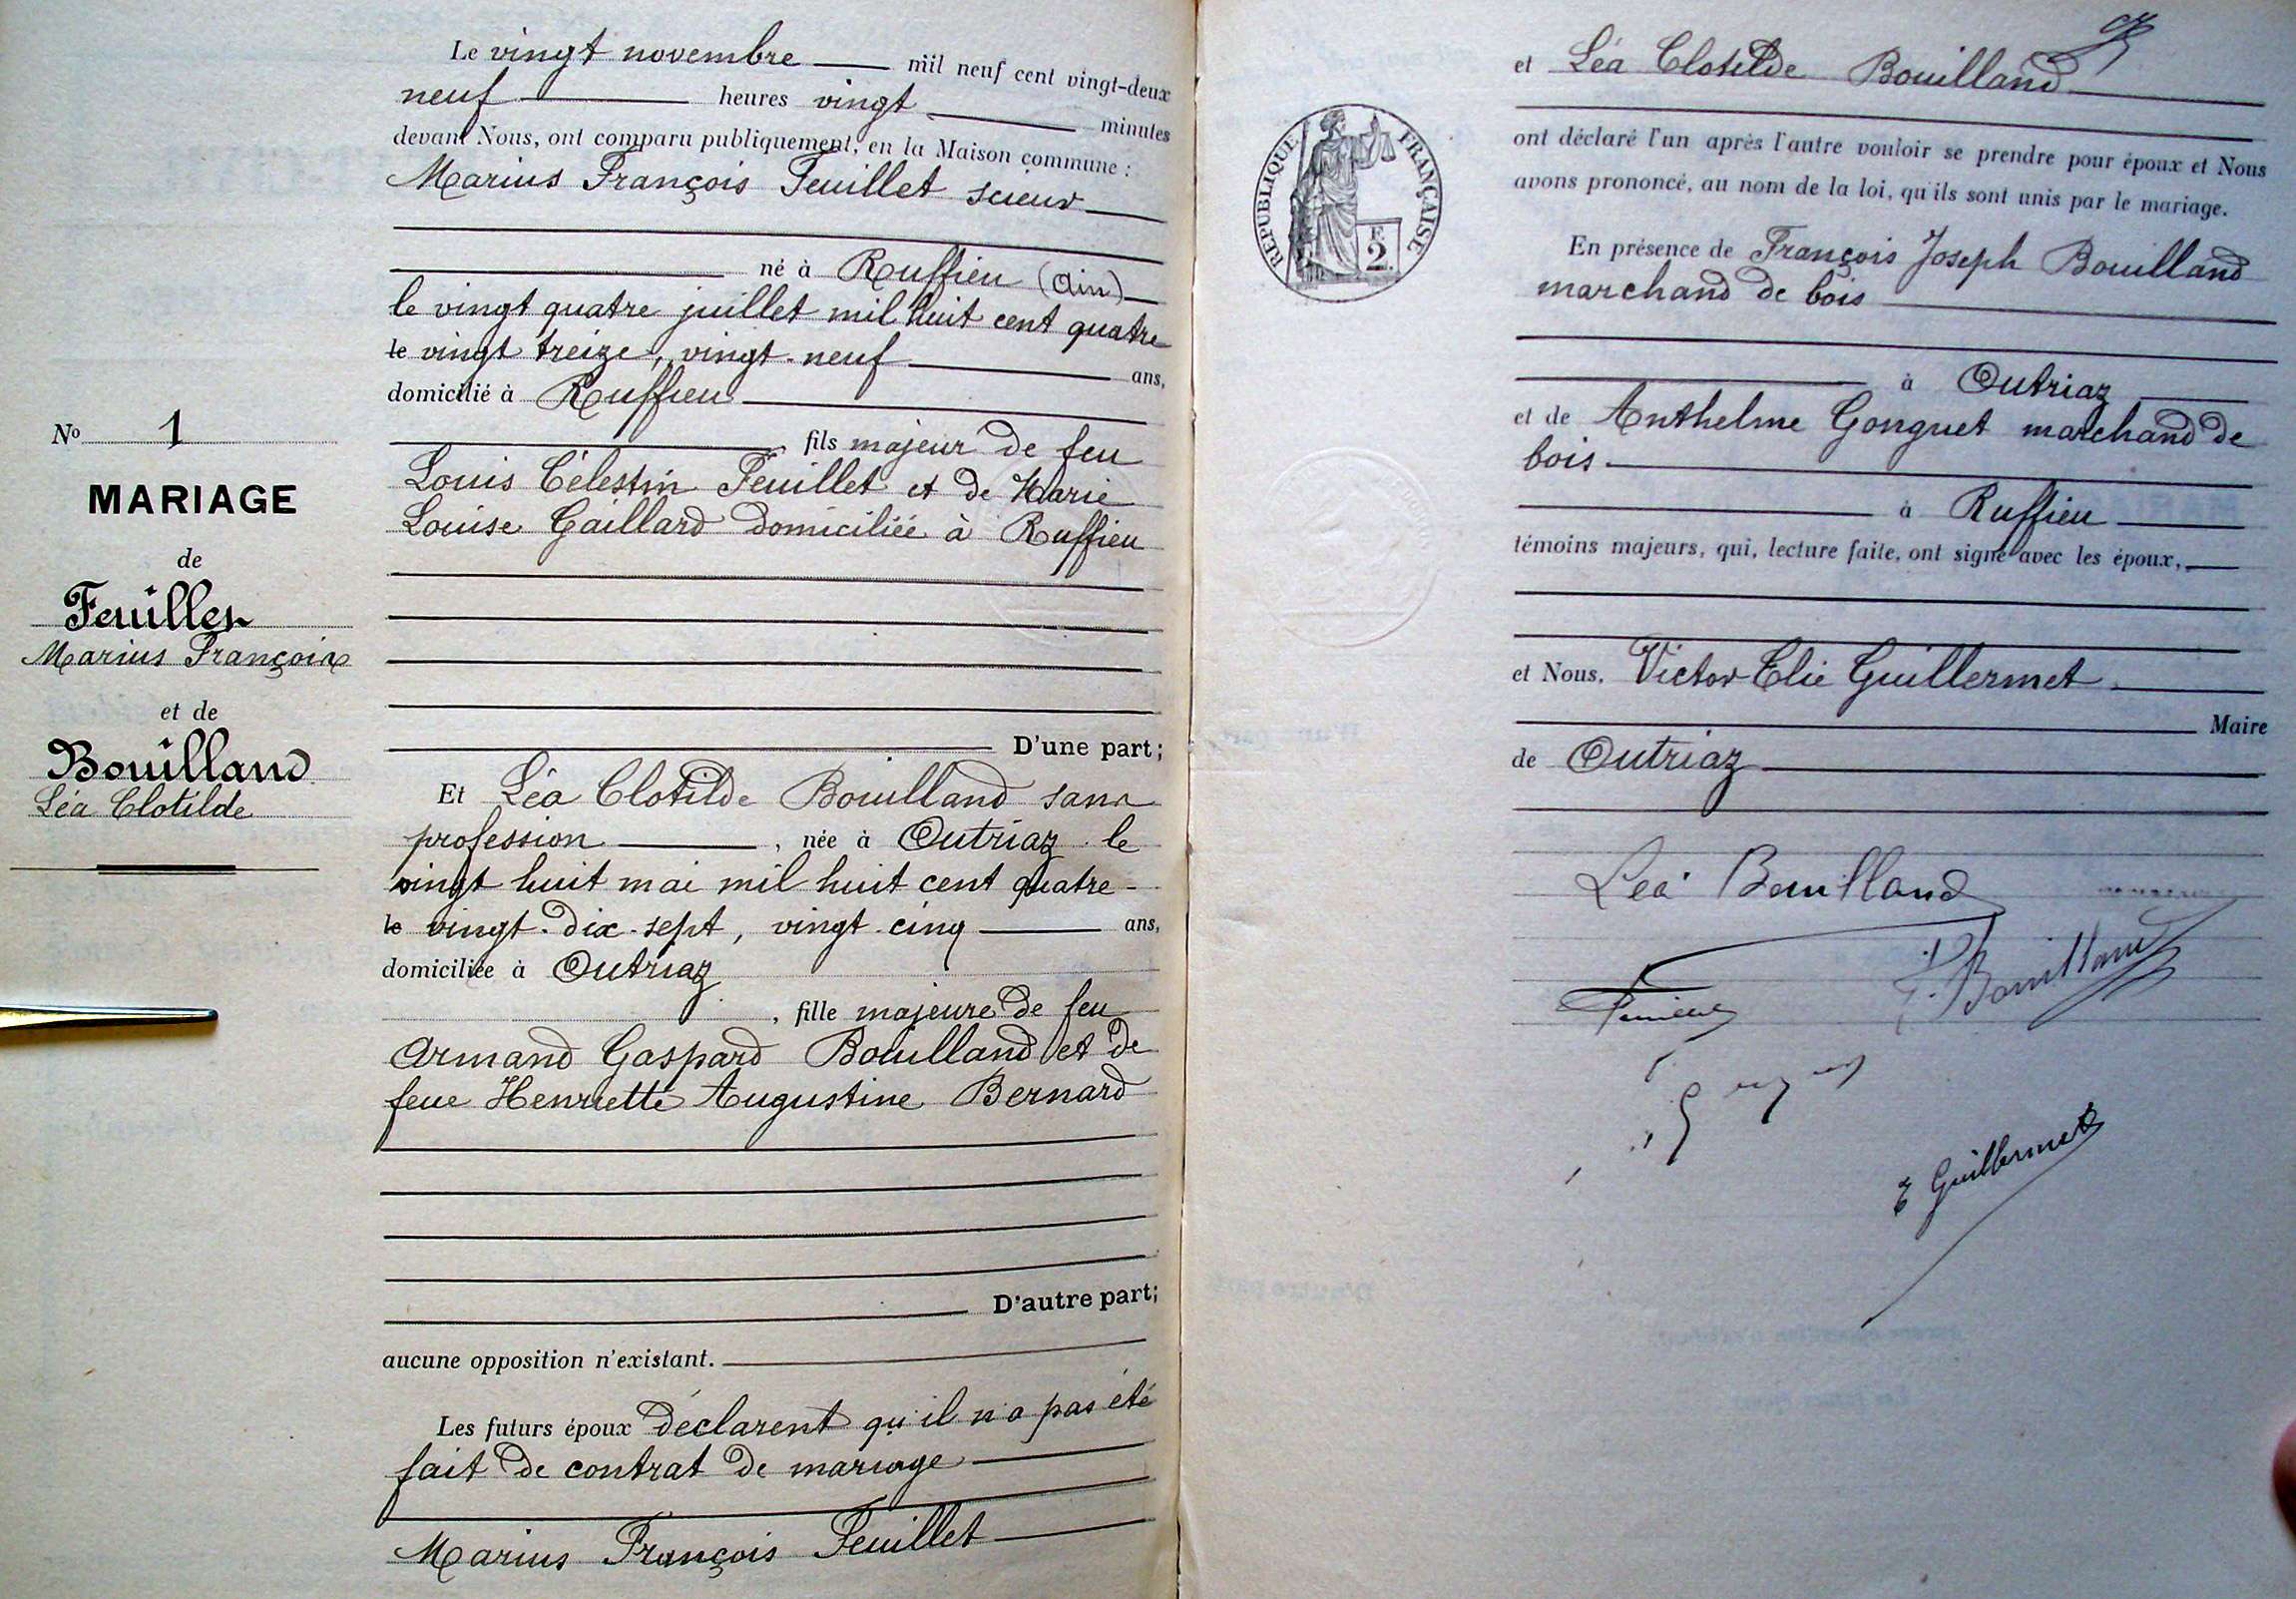 Le vingt novembre mil neuf cent vingt-deux
neuf heures vingt minutes
devant Nous, ont comparu publiquement, en la Maison commune :
Marius François Feuillet scieur
né à Ruffieu (Ain)
le vingt quatre juillet mil huit cent quatre
le vingt treize, vingt-neuf ans,
domicilié à Ruffieu
, fils majeur de feu
Louis Célestin Feuillet et de Marie
Louise Gaillard domiciliée à Ruffieu
D'une part;
Et Léa Clotilde Bouilland sans
profession , née à Outriaz le
vingt huit mai mil huit cent quatre-
le vingt-dix-sept, vingt-cinq ans,
domiciliée à Outriaz
, fille majeure de feu
Armand Gaspard Bouilland et de
feue Henriette Augustine Bernard
D'autre part;
aucune opposition n'existant.
Les futurs époux déclarent qu'il n'a pas été
fait de contrat de mariage
Marius François Feuillet
No 1
MARIAGE
de
Feuillet
Marius François
et de
Bouilland
Léa Clotilde
et Léa Clotilde Bouilland
RÉPUBLIQUE FRANÇAISE
F.
2.
ont déclaré l'un après l'autre vouloir se prendre pour époux et Nous
avons prononcé, au nom de la loi, qu'ils sont unis par le mariage.
En présence de François Joseph Bouilland
marchand de bois
à Outriaz
et de Anthelme Gonguet marchand de
bois
à Ruffieu
témoins majeurs, qui, lecture faite, ont signé avec les époux,
et Nous, Victor Elie Guillermet
Maire
de Outriaz
Léa Bouilland
F. Bouilland
E Guillermet